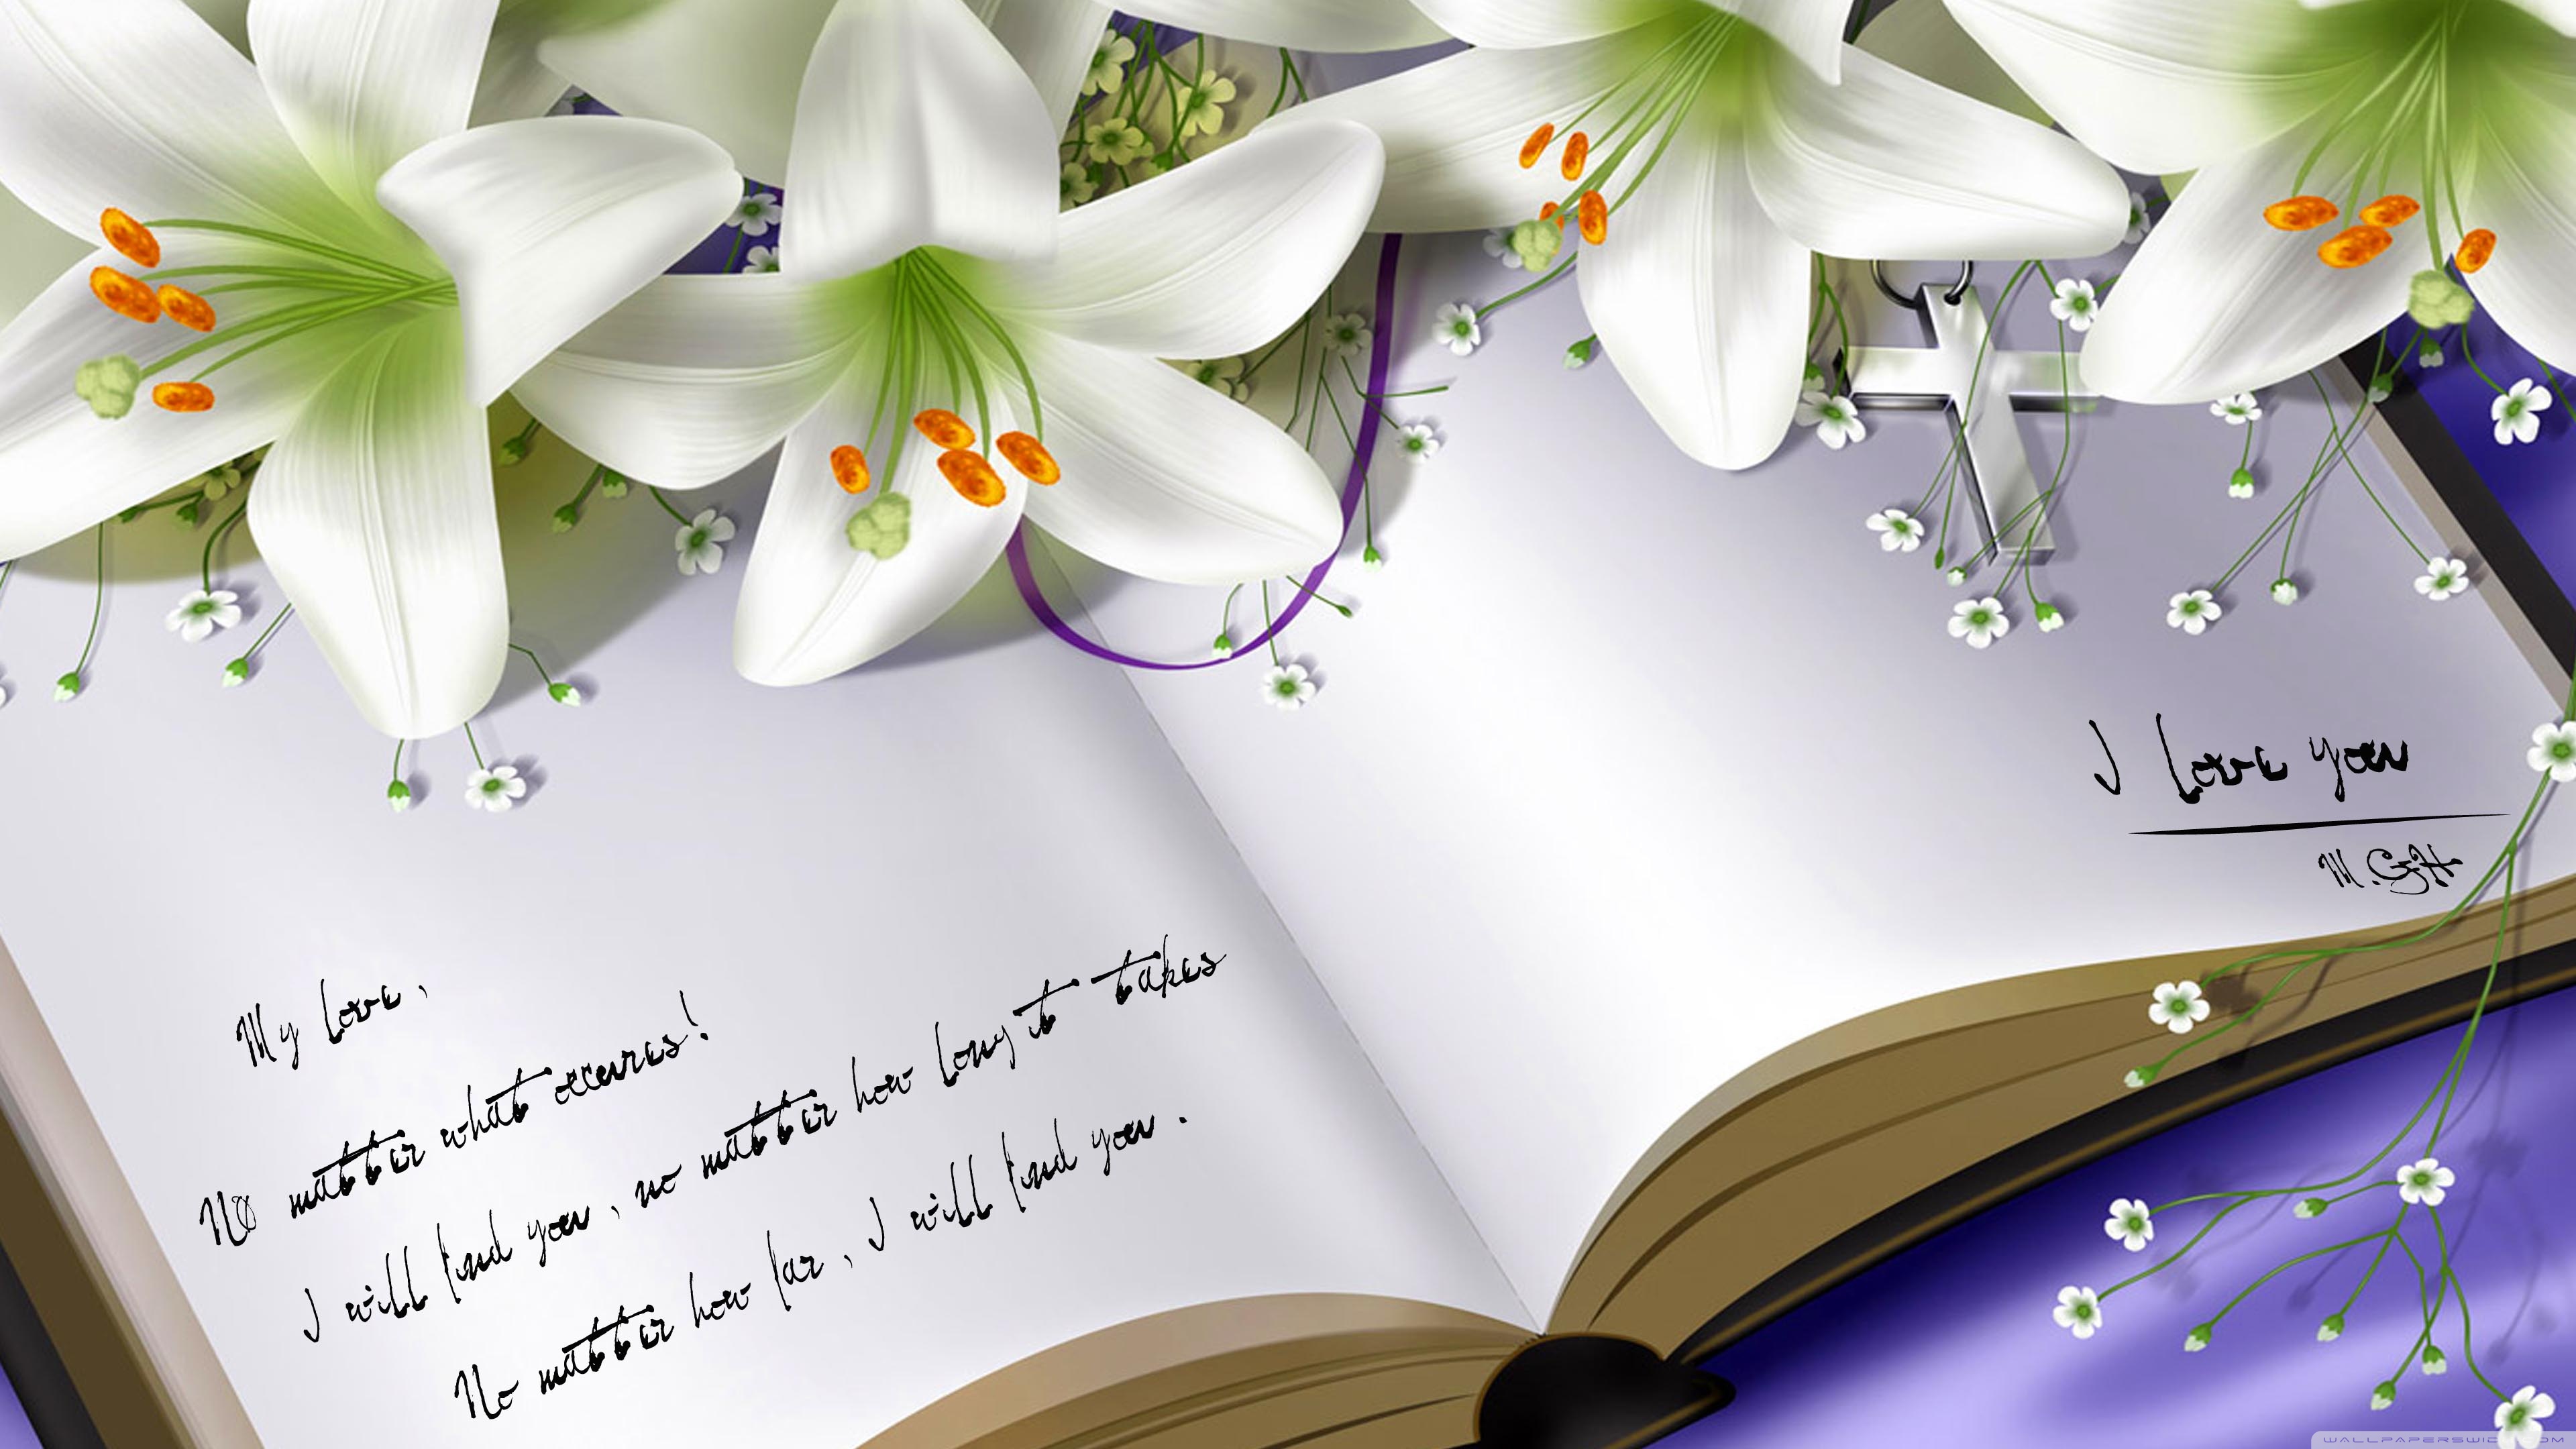 My love,
No matter what occures!
I will find you, no matter how long it takes
No matter how far, I will find you.
I love you
M.GH